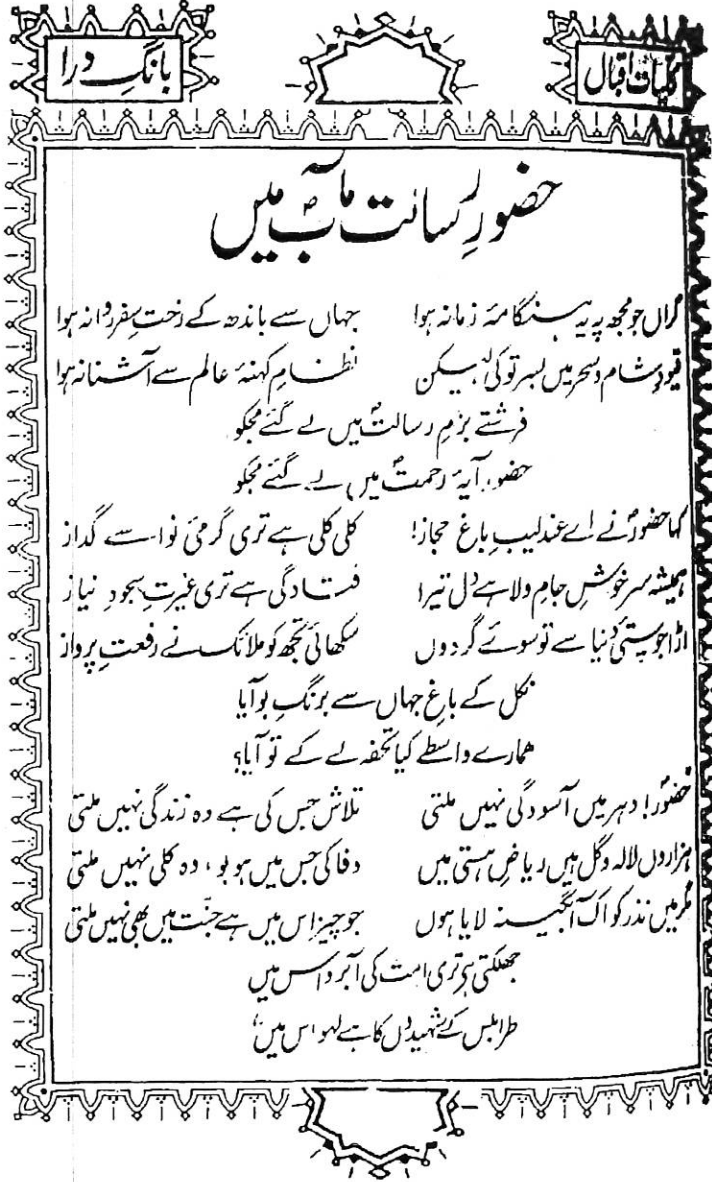 کلیات اقبال
بانگِ درا
حضورِ رسالت مآبؐ میں
گراں جو مجھ پہ یہ ہنگامۂ زمانہ ہوا جہاں سے باندھ کے رختِ سفر روانہ ہوا
قیودِ شام و سحر میں بسر تو کی لیکن نظامِ کہنۂ عالم سے آشنا نہ ہوا
فرشتے بزمِ رسالتؐ میں لے گئے مجکو
حضورِ آیۂ رحمتؐ میں لے گئے مجکو
کہا حضورؐ نے اے عندلیبِ باغِ حجاز! کلی کلی ہے تری گرمیٔ نوا سے گداز
ہمیشہ سرخوشِ جامِ ولا ہے دل تیرا فتادگی ہے تری غیرتِ سجودِ نیاز
اڑا جو پستیٔ دنیا سے تو سوئے گردوں سکھائی تجھ کو ملائک نے رفعتِ پرواز
نکل کے باغِ جہاں سے برنگِ بو آیا
ہمارے واسطے کیا تحفہ لے کے تو آیا؟
حضورؐ! دہر میں آسودگی نہیں ملتی تلاش جس کی ہے وہ زندگی نہیں ملتی
ہزاروں لالہ و گل ہیں ریاضِ ہستی میں وفا کی جس میں ہو بو، وہ کلی نہیں ملتی
مگر میں نذر کو اک آبگینہ لایا ہوں جو چیز اس میں ہے جنت میں بھی نہیں ملتی
جھلکتی ہے تری امت کی آبرو اس میں
طرابلس کے شہیدوں کا ہے لہو اس میں